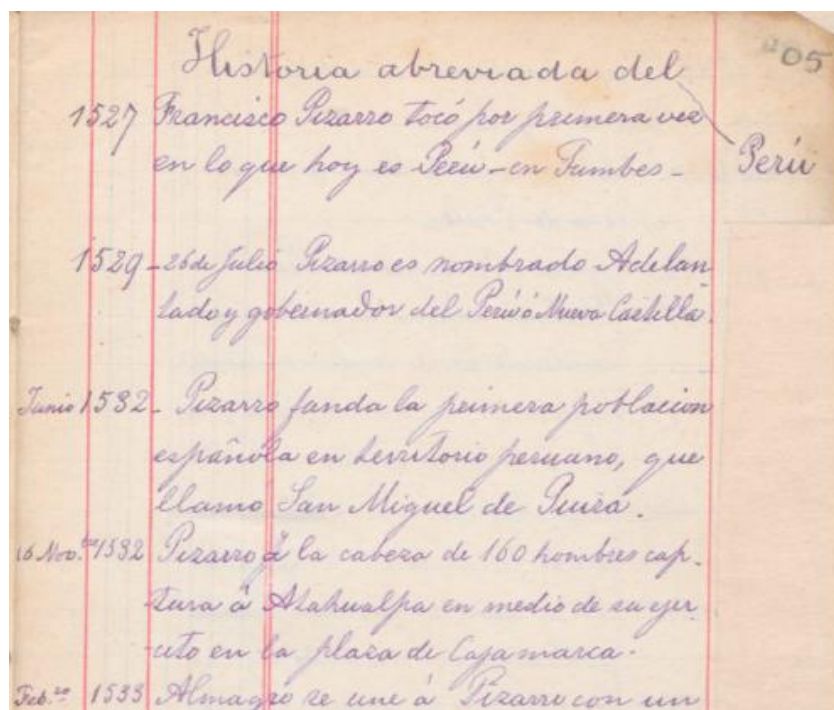 205
Historia abreviada del
Perú
1527 Francisco Pizarro tocó por primera vez
en lo que hoy es Perú - en Tumbes -
1529 - 26 de Julio Pizarro es nombrado Adelan
tado y gobernador del Perú ó Nueva Castilla.
Junio 1532 - Pizarro funda la primera poblacion
española en territorio peruano, que
llamó San Miguel de Piura.
16 Nov.bre 1532 Pizarro á la cabeza de 160 hombres cap-
tura á Atahualpa en medio de su ejer-
cito en la plaza de Cajamarca.
Feb.ro 1533 Almagro se une á Pizarro con un